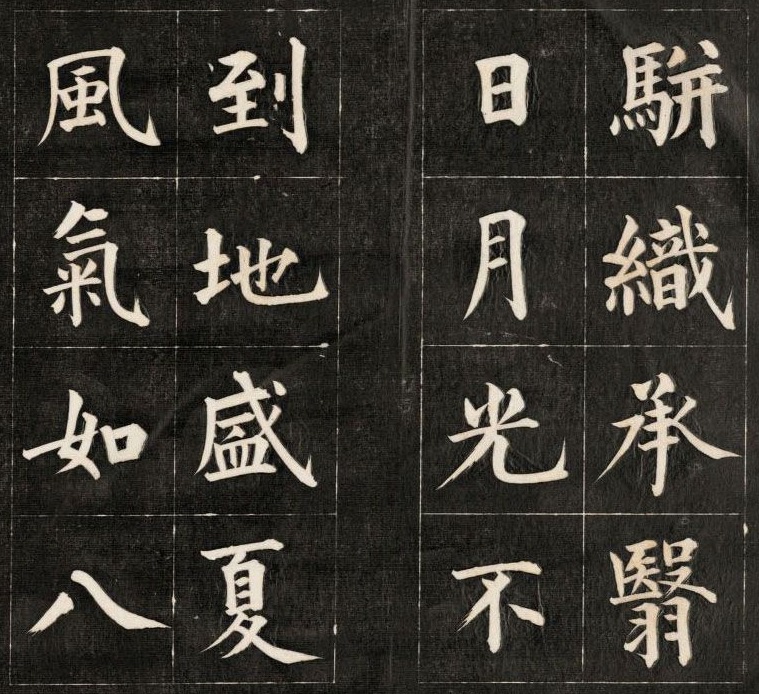 騈織承翳
日月光不
到地盛夏
風氣如八